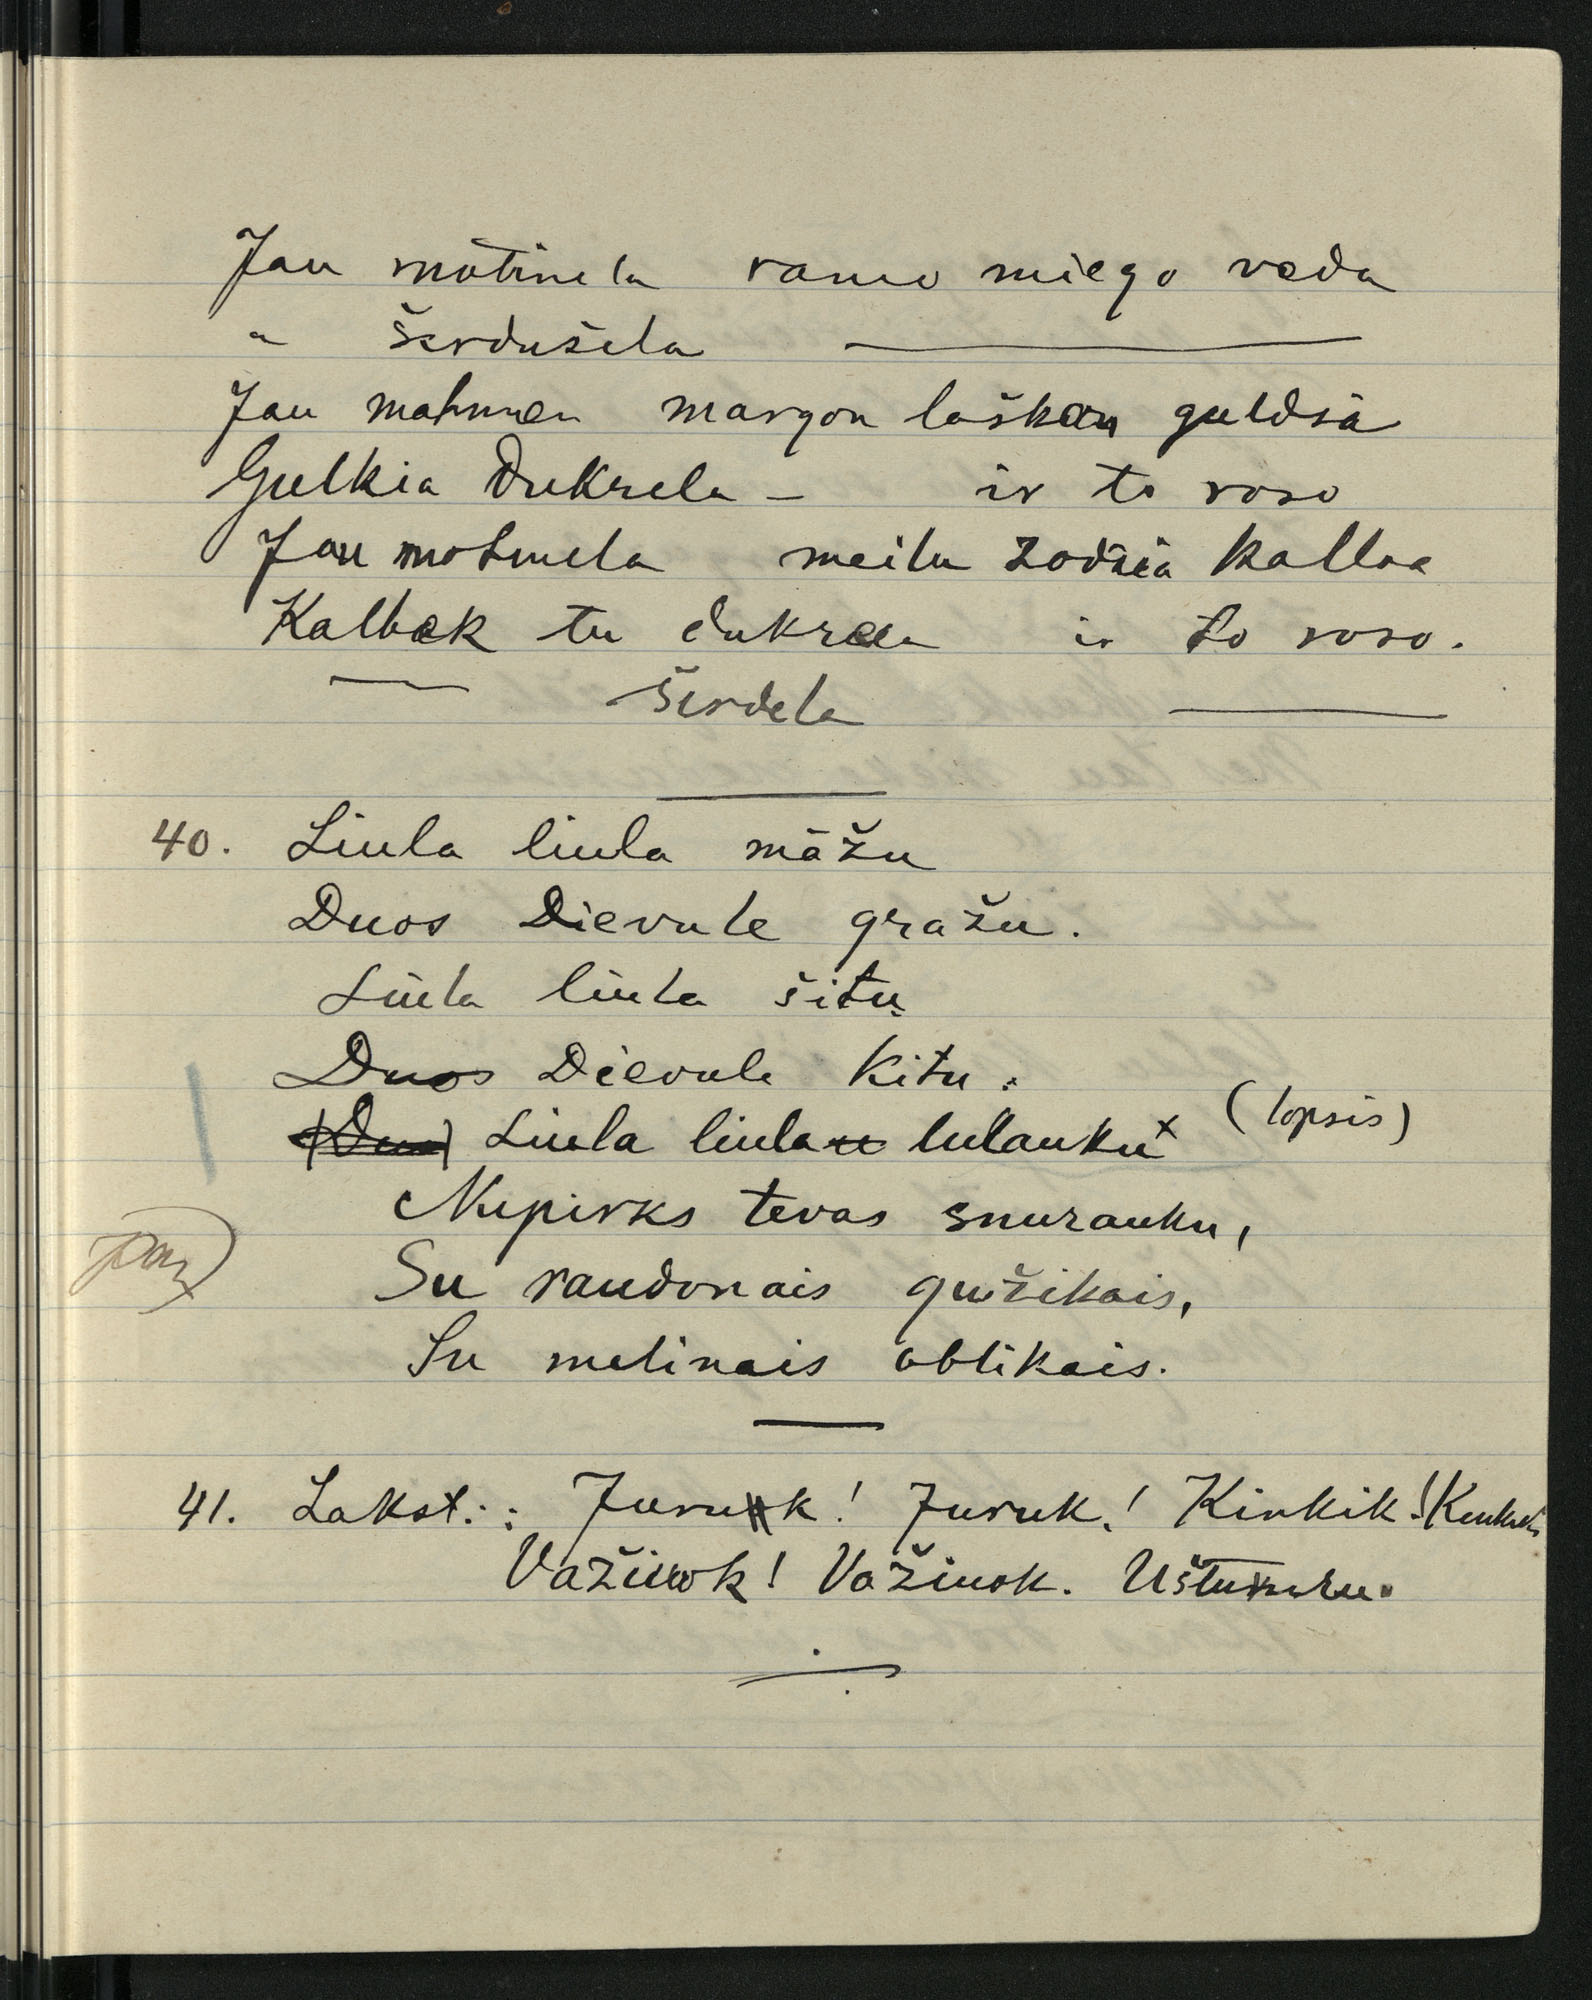 Jau motinela ramo miego veda
" širdužela
Jau margon loškon guldia
Gulkia dukrela — ir to roso
Jau motinela meilu žodžia kalba
Kalbek tu dukrela ir to roso.
širdela
40. Liula liula māžu
Duos Dievule gražu.
Liula liula šitu
Duos Dievule kitu.
Liula liula lulauku x (lopsis)
Nupirks tevas snurauku,
Su raudonais gužikais,
Su melinais oblikais.
41. Lakst.: Juruk! Juruk! Kinkik!
Važiuok! Važiuok.